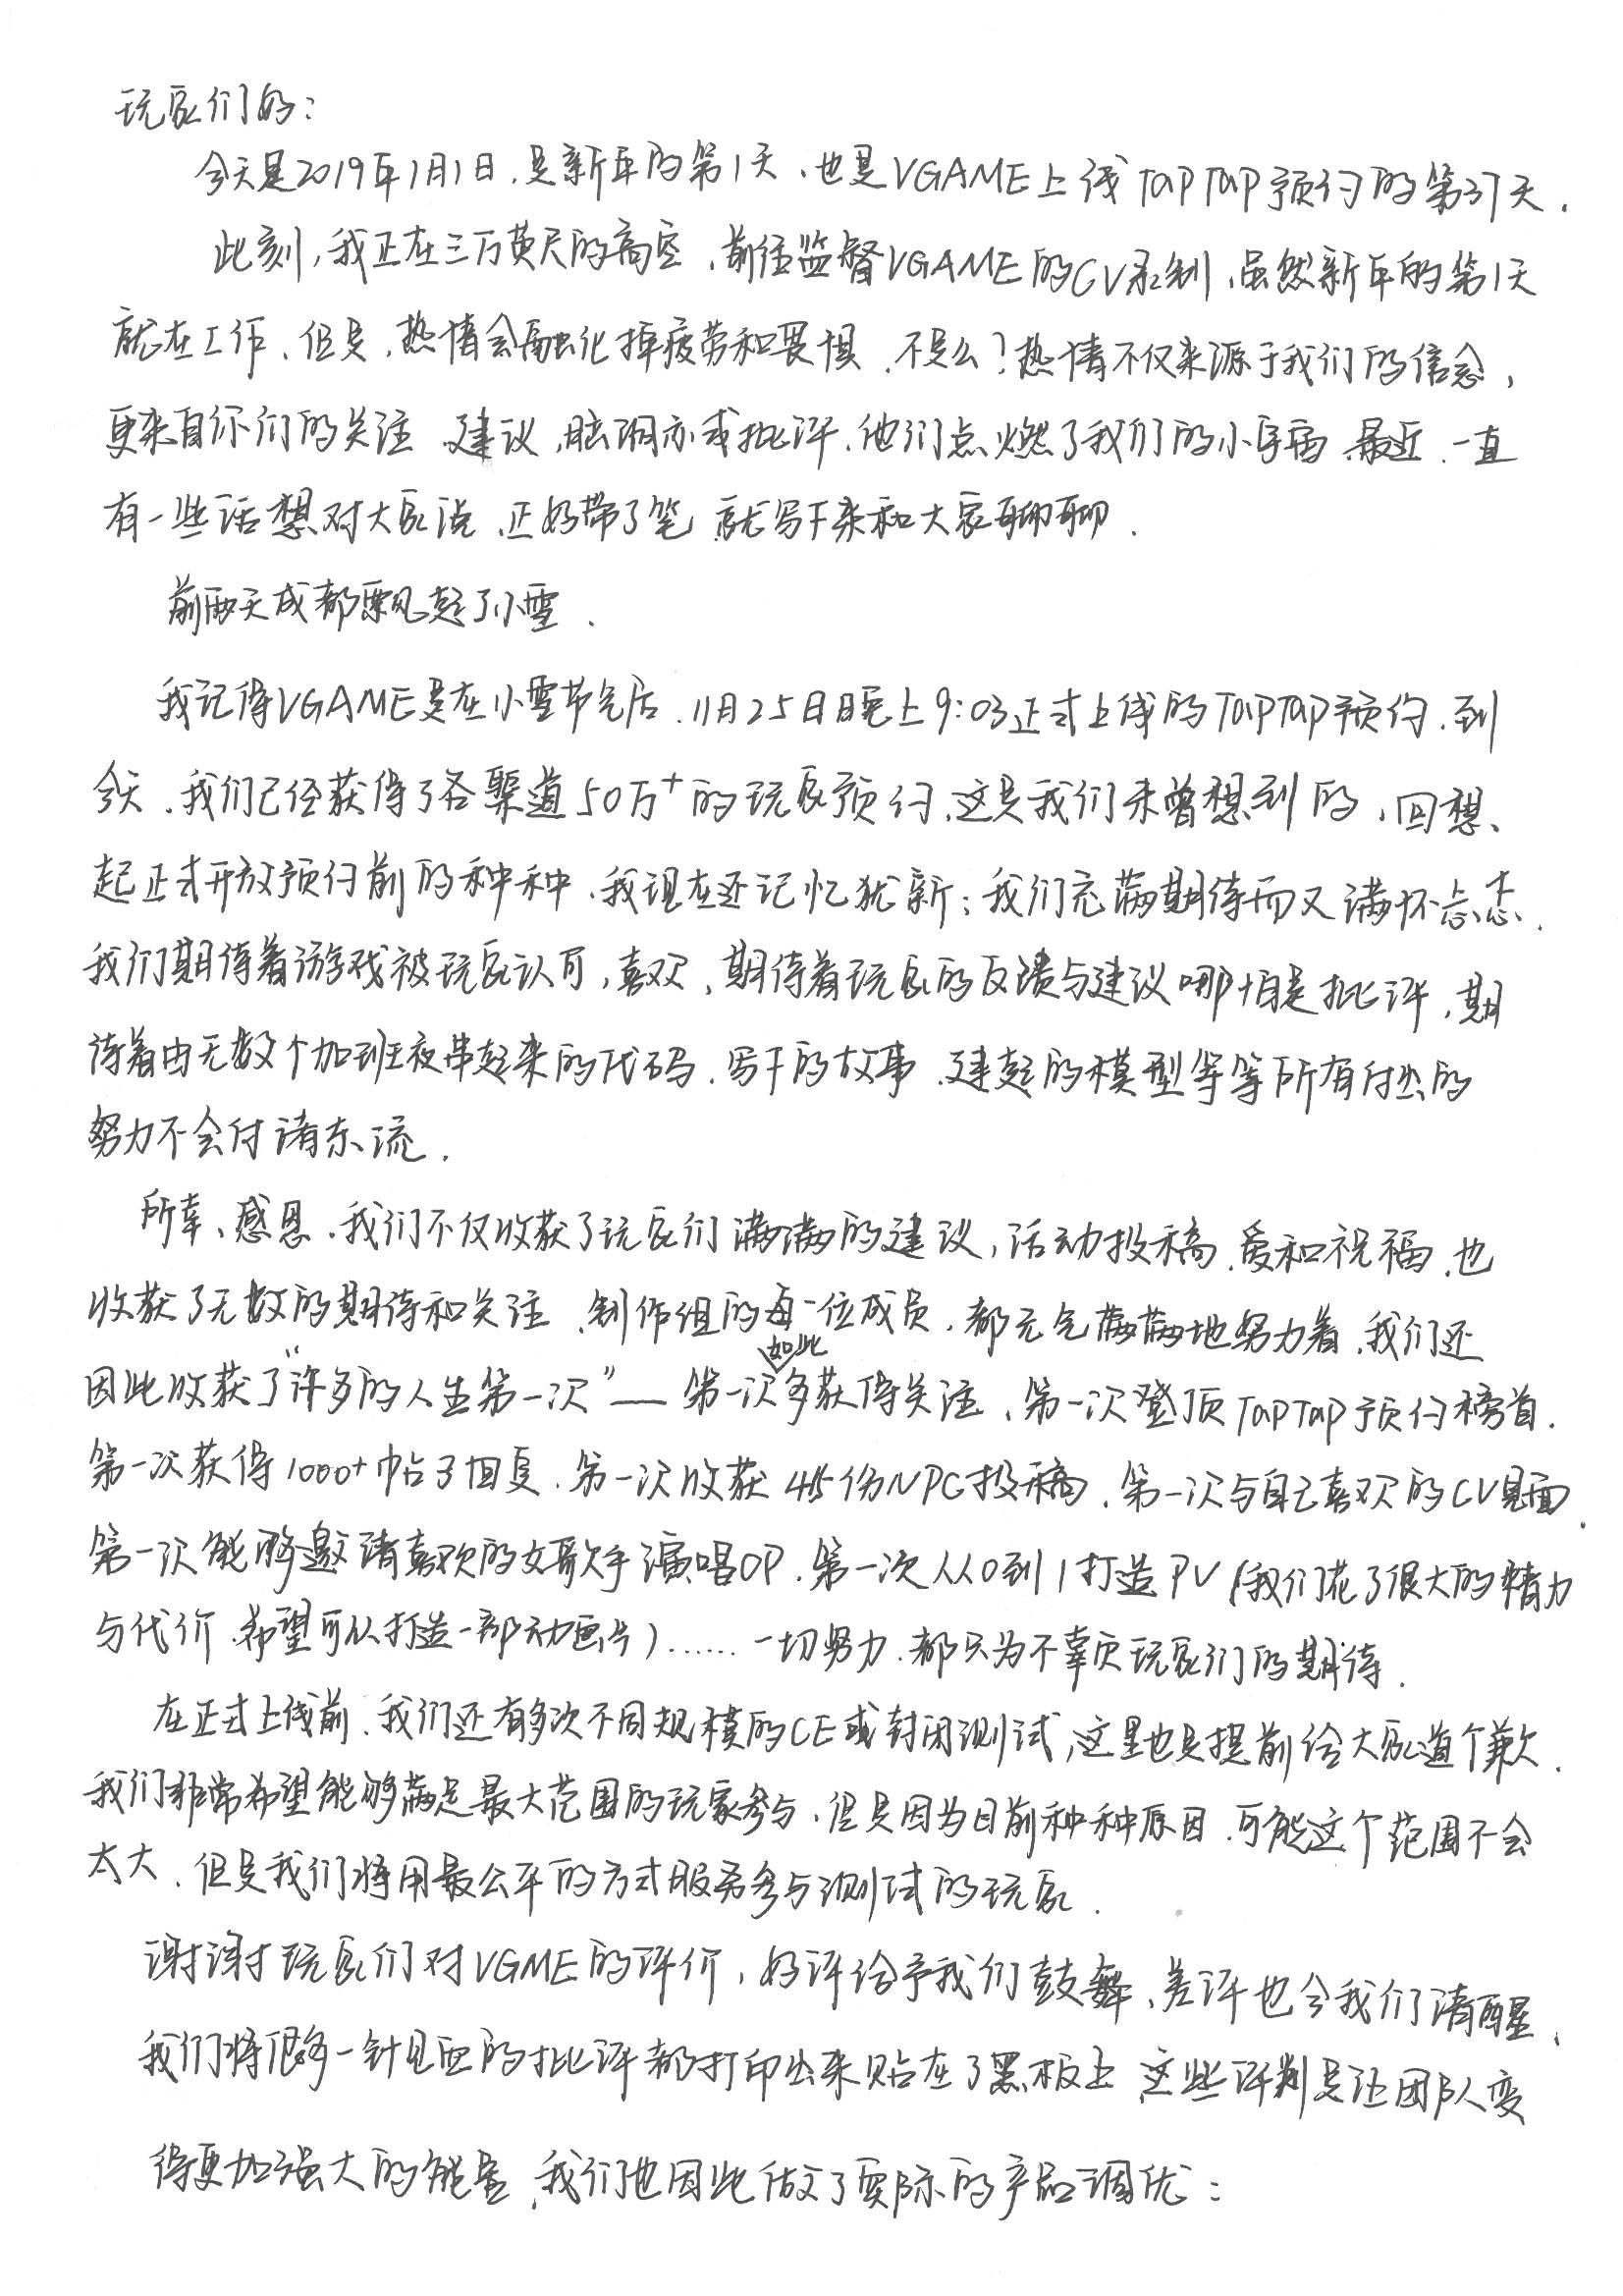 玩家们好：
今天是2019年1月1日，是新年的第1天，也是VGAME上线TapTap预约的第37天．
此刻，我正在三万英尺的高空，前往监督VGAME的CV录制，虽然新年的第1天
就在工作，但是，热情会融化掉疲劳和畏惧，不是么？热情不仅来源于我们的信念，
更来自你们的关注、建议，脑洞亦或批评．他们点燃了我们的小宇宙，最近，一直
有一些话想对大家说，正好带了笔，就写下来和大家聊聊．
前两天成都飘起了小雪．
我记得VGAME是在小雪节气后，11月25日晚上9:03正式上线的TapTap预约．到
今天，我们已经获得了各渠道50万+的玩家预约，这是我们未曾想到的，回想、
起正式开放预约前的种种，我现在还记忆犹新：我们充满期待而又满怀忐忑．
我们期待着游戏被玩家认可，喜欢，期待着玩家的反馈与建议哪怕是批评，期
待着由无数个加班夜串起来的代码，写下的故事，建起的模型等等所有付出的
努力不会付诸东流．
所幸、感恩．我们不仅收获了玩家们满满的建议，活动投稿，爱和祝福，也
收获了无数的期待和关注，制作组的每一位成员，都元气满满地努力着．我们还
因此收获了“许多的人生第一次”——第一次如此多获得关注，第一次登顶TapTap预约榜首．
第一次获得1000+帖子回复．第一次收获45份NPC投稿，第一次与自己喜欢的CV见面．
第一次能够邀请喜欢的女歌手演唱OP．第一次从0到1打造PV（我们花了很大的精力
与代价，希望可以打造一部动画片）……一切努力，都只为不辜负玩家们的期待．
在正式上线前，我们还有多次不同规模的CE或封闭测试，这里也是提前给大家道个歉．
我们非常希望能够满足最大范围的玩家参与，但是因为目前种种原因，可能这个范围不会
太大，但是我们将用最公平的方式服务参与测试的玩家．
谢谢玩家们对VGME的评价，好评给予我们鼓舞，差评也令我们清醒，
我们将很多一针见血的批评都打印出来贴在了黑板上，这些评判是让团队变
得更加强大的能量，我们也因此做了实际的产品调优：